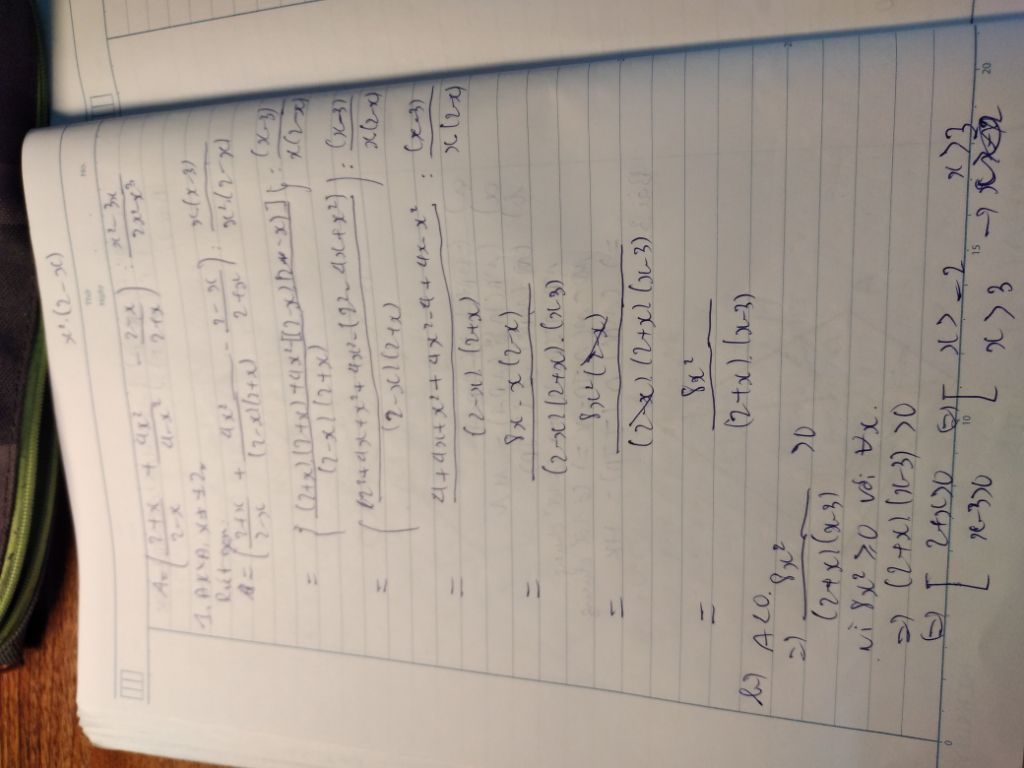 x².(2-x)
A=(2+x/2-x + 4x²/4-x² - 2-x/2+x) : x²-3x/2x²-x³
A = (2+x/2-x + 4x²/(2-x)(2+x) - 2-x/2+x) : x(x-3)/x²(2-x)
= {(2+x)(2+x)+4x²-[(2-x)(2-x)]/(2-x)(2+x)} : (x-3)/x(2-x)
= (2²+4x+x²+4x²-(2²-4x+x²)/(2-x)(2+x)) : (x-3)/x(2-x)
= 4+4x+x²+4x²-4+4x-x²/(2-x)(2+x) : (x-3)/x(2-x)
= 8x-x(2-x)/(2-x)(2+x).(x-3)
= 8x²(2-x)/(2-x)(2+x)(x-3)
= 8x²/(2+x).(x-3)
b) A<0.
=) 8x²/(2+x)(x-3) >0
vì 8x² ≥0 với ∀x.
=) (2+x)(x-3) >0
(=) [ 2+x>0 (=) [ x>-2
[ x-3>0 [ x>3 → x>3